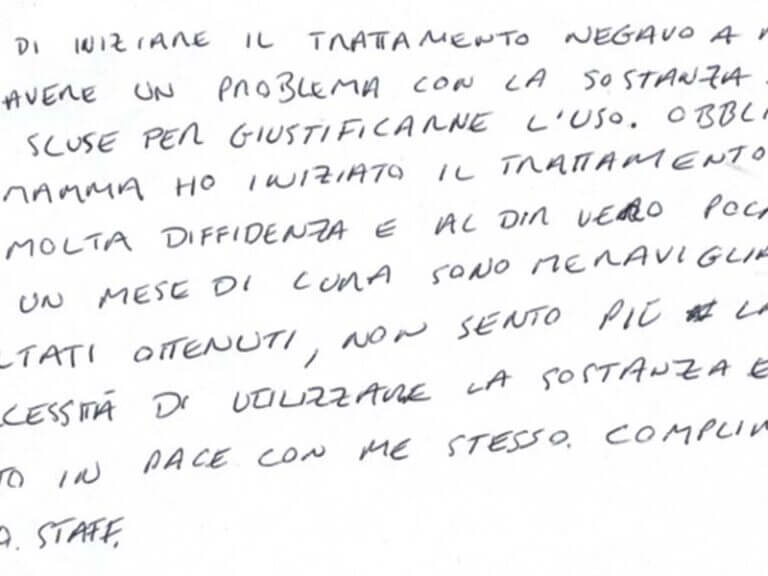 DI INIZIARE IL TRATTAMENTO NEGAVO A
AVERE UN PROBLEMA CON LA SOSTANZA
SCUSE PER GIUSTIFICARNE L'USO. OBBLI
MAMMA HO INIZIATO IL TRATTAMENTO
MOLTA DIFFIDENZA E AL DIR VERO POCA
UN MESE DI CURA SONO MERAVIGLIA
LTATI OTTENUTI, NON SENTO PIÙ LA
CESSITÀ DI UTILIZZARE LA SOSTANZA E
TO IN PACE CON ME STESSO. COMPLIM
STAFF.